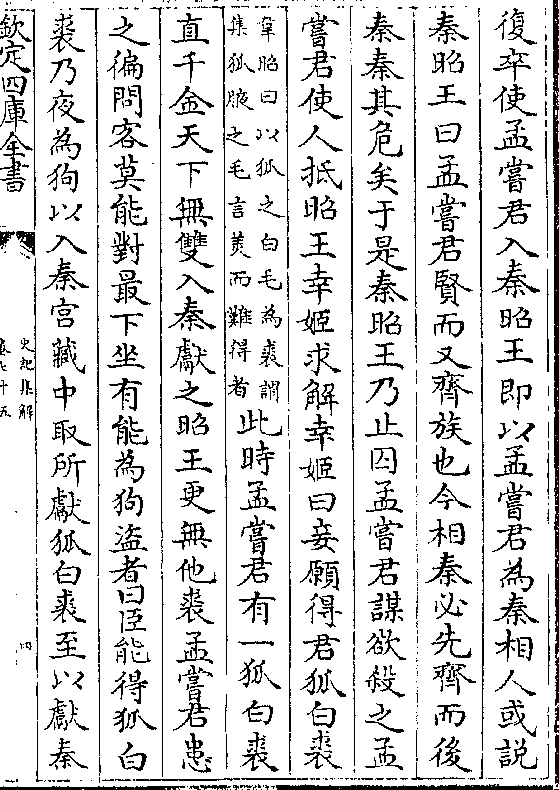 復卒使孟嘗君入秦昭王即以孟嘗君為秦相人或説
秦昭王曰孟嘗君賢而又齊族也今相秦必先齊而後
秦秦其危矣于是秦昭王乃止囚孟嘗君謀欲殺之孟
嘗君使人抵昭王幸姬求解幸姬曰妾願得君狐白裘
韋昭曰以狐之白毛為裘謂
集狐腋之毛言美而難得者
此時孟嘗君有一狐白裘
直千金天下無雙入秦獻之昭王更無他裘孟嘗君患
之徧問客莫能對最下坐有能為狗盜者曰臣能得狐白
裘乃夜為狗以入秦宮藏中取所獻狐白裘至以獻秦
欽定四庫全書
史記集解
卷七十五
四